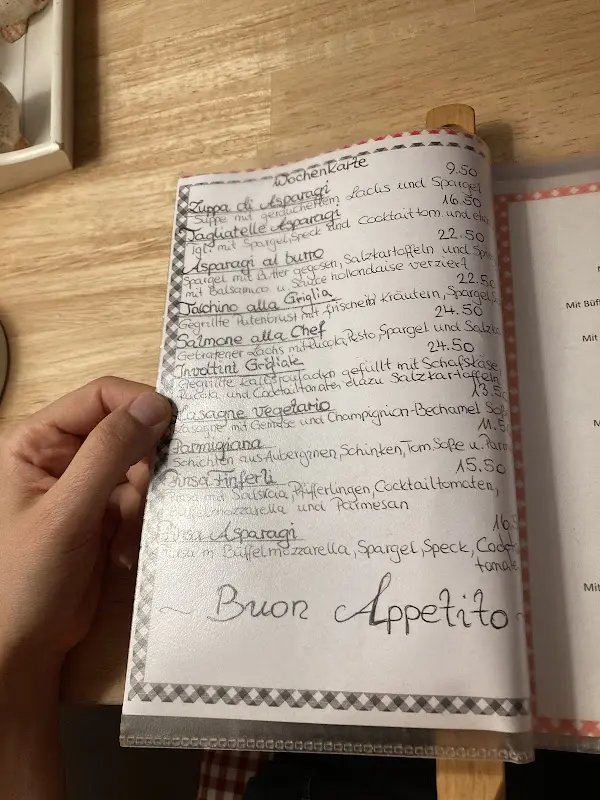 Wochenkarte
Zuppa di Asparagi 9.50
Suppe mit geräuchertem Lachs und Spargel
Tagliatelle Asparagi 16.50
Tgl. mit Spargel, Speck und Cocktailtom und
Asparagi al burro 22.50
Spargel mit Butter gegosen, Salzkartoffeln und
mit Balsamico u. Sauce hollondaise verziert
Tachino alla Griglia 22.50
Gegrillte Putenbrust mit frischein Kräutern, Spargel
Salmone alla Chef 24.50
Gebratener Lachs mit Rucola, Pesto, Spargel und
Involtini Grigliate 24.50
Gegrillte Kalbsrouladen gefüllt mit Schafskäse
Rucola und Cocktailtomaten, dazu Salzkartoffeln
Lasagne Vegetario 13.50
Lasagne mit Gemüse und Champignion-Bechamel
Parmigiana
Schichten aus Auberginen, Schinken, Tom. Soße u.
Pinsa Finferli 15.50
Pinsa mit Salsicia, Pfifferlingen, Cocktailtomaten,
Büffelmozzarella und Parmesan
Pinsa Asparagi
Pinsa m. Büffelmozzarella, Spargel, Speck,
~ Buon Appetito ~
Mit
Mit
Mit